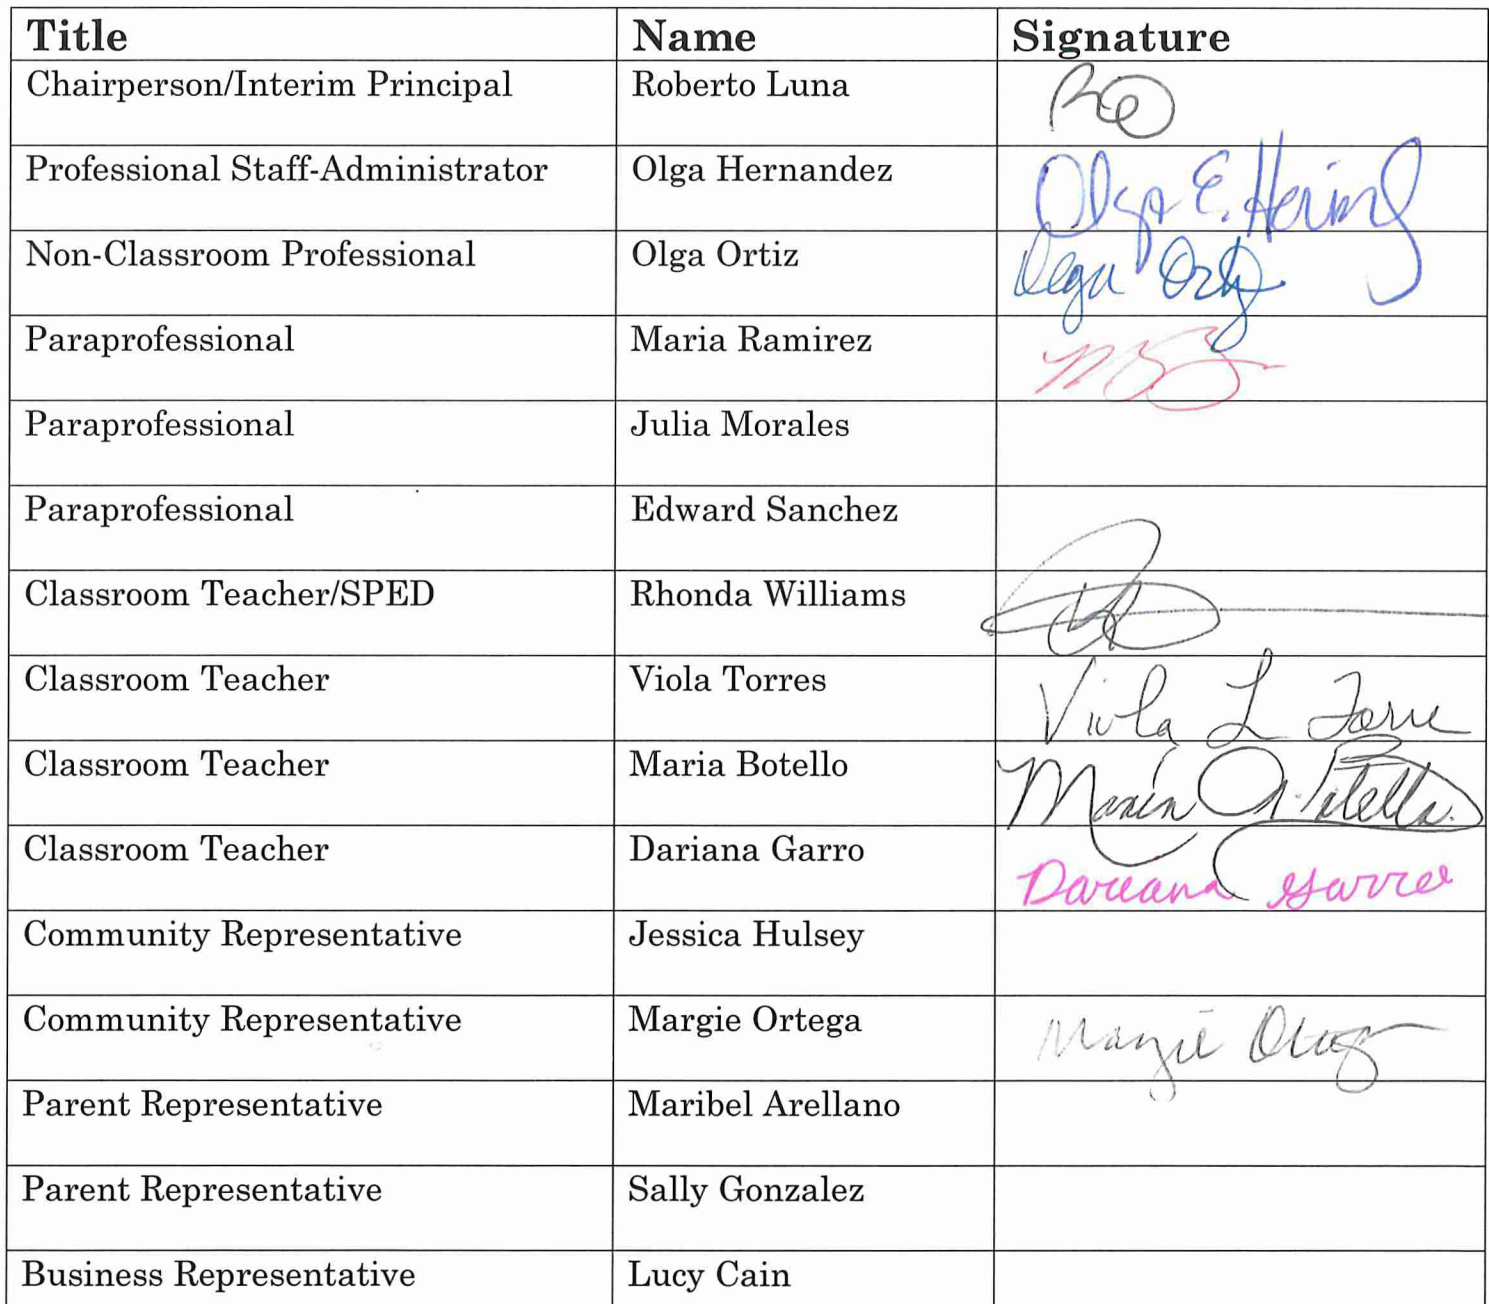 Title Name Signature
Chairperson/Interim Principal Roberto Luna
Professional Staff-Administrator Olga Hernandez Olga E. Hernz
Non-Classroom Professional Olga Ortiz Olga Ortiz
Paraprofessional Maria Ramirez
Paraprofessional Julia Morales
Paraprofessional Edward Sanchez
Classroom Teacher/SPED Rhonda Williams
Classroom Teacher Viola Torres Viola L Torre
Classroom Teacher Maria Botello Maria
Classroom Teacher Dariana Garro Dariana Garro
Community Representative Jessica Hulsey
Community Representative Margie Ortega Margie Ortega
Parent Representative Maribel Arellano
Parent Representative Sally Gonzalez
Business Representative Lucy Cain